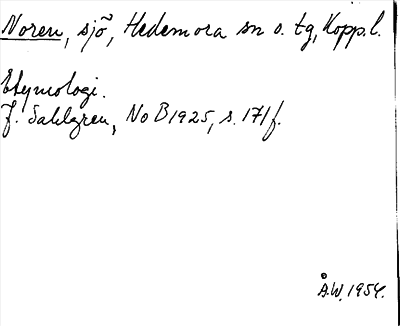 Noren, sjö, Hedemora sn o. tg, Kopp.l.
Etymologi.
J. Sahlgren, NoB 1925, s. 171f.
Å.W. 1954.